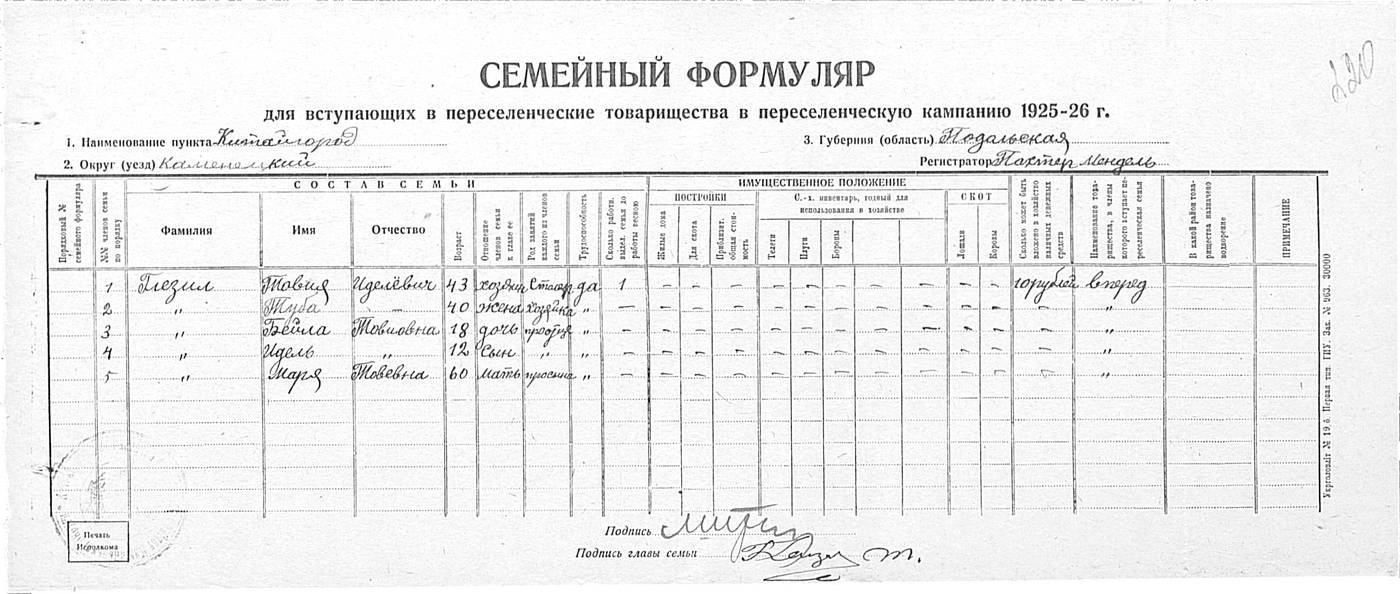 220
СЕМЕЙНЫЙ ФОРМУЛЯР
для вступающих в переселенческие товарищества в переселенческую кампанию 1925-26 г.
1. Наименование пункта Китайгород
3. Губерния (область) Подольская
2. Округ (уезд) Каменецкий
Регистратор Пахтер Мендель
СОСТАВ СЕМЬИ
ИМУЩЕСТВЕННОЕ ПОЛОЖЕНИЕ
ПОСТРОЙКИ
С.-х. инвентарь, годный для использования в хозяйстве
СКОТ
Порядковый № семейного формуляра
№№ членов семьи по порядку
Фамилия
Имя
Отчество
Возраст
Отношение членов семьи к главе ее
Род занятий каждого из членов семьи
Трудоспособность
Сколько работн. выдел. семья до работы весною
Жилые дома
Для скота
Приблизит. общая стоимость
Телеги
Плуги
Бороны
Лошади
Коровы
Сколько может быть вложено в хозяйство наличных денежных средств
Наименование товарищества, в члены которого вступает переселенческая семья
В какой район товарищества назначено водворение
ПРИМЕЧАНИЕ
1 Товия Иделевич 43 да 1 – – – – – – – – – – 10 рублей вперед
2 " Туба – 40 жена хозяйка " – – – – – – – – – – – – "
3 " Бейла Товиовна 18 дочь " – – – – – – – – – – – – "
4 " Идель " 12 сын " " – – – – – – – – – – – – "
5 " Маря Товевна 60 мать " – – – – – – – – – – – – "
Печать Исполкома
Подпись
Подпись главы семьи
Укрголовліт № 19.б. Первая тип. ГИУ. Зак. № 963. 30000